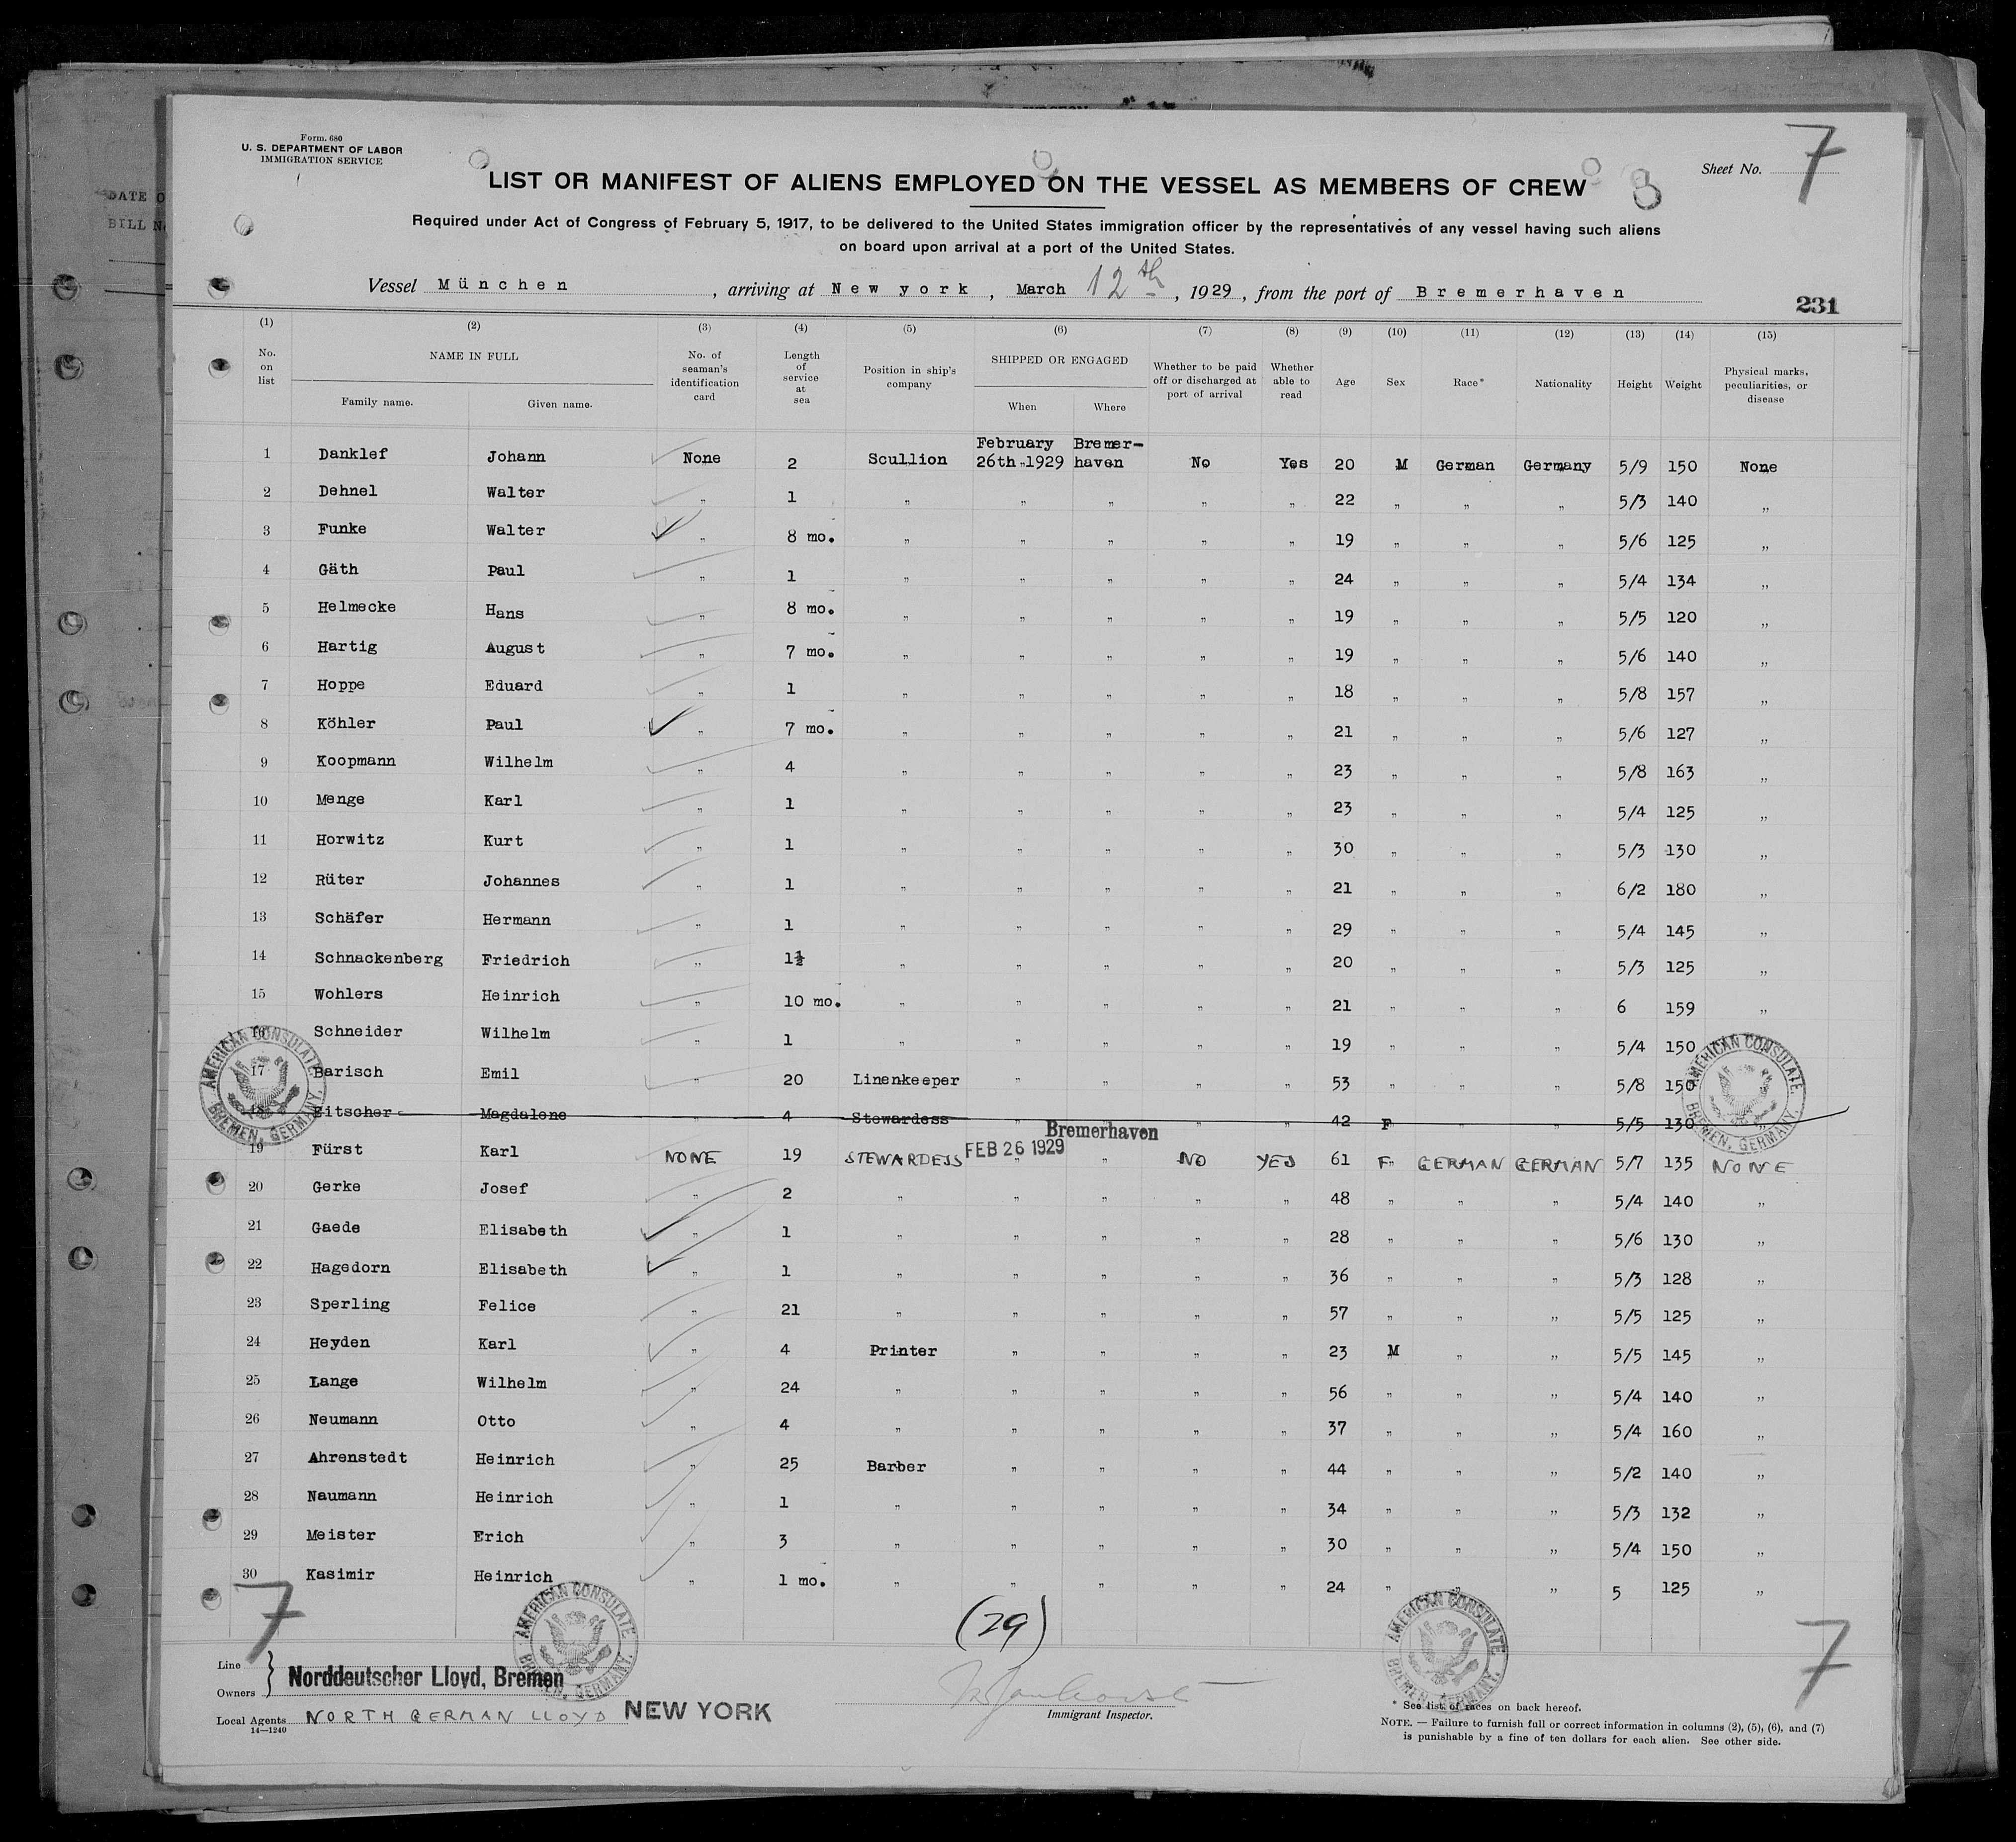 Form. 680
U. S. DEPARTMENT OF LABOR
IMMIGRATION SERVICE
Sheet No. 7
LIST OR MANIFEST OF ALIENS EMPLOYED ON THE VESSEL AS MEMBERS OF CREW 8
Required under Act of Congress of February 5, 1917, to be delivered to the United States immigration officer by the representatives of any vessel having such aliens
on board upon arrival at a port of the United States.
Vessel München, arriving at New york, March 12th, 1929, from the port of Bremerhaven
231
(1) (2) (3) (4) (5) (6) (7) (8) (9) (10) (11) (12) (13) (14) (15)
No. on list NAME IN FULL Family name. Given name. No. of seaman's identification card Length of service at sea Position in ship's company SHIPPED OR ENGAGED When Where Whether to be paid off or discharged at port of arrival Whether able to read Age Sex Race* Nationality Height Weight Physical marks, peculiarities, or disease
1 Danklef Johann None 2 Scullion February 26th 1929 Bremer-haven No Yes 20 M German Germany 5/9 150 None
2 Dehnel Walter " 1 " " " " " 22 " " " 5/3 140 "
3 Funke Walter " 8 mo. " " " " " 19 " " " 5/6 125 "
4 Gäth Paul " 1 " " " " " 24 " " " 5/4 134 "
5 Helmecke Hans " 8 mo. " " " " " 19 " " " 5/5 120 "
6 Hartig August " 7 mo. " " " " " 19 " " " 5/6 140 "
7 Hoppe Eduard " 1 " " " " " 18 " " " 5/8 157 "
8 Köhler Paul " 7 mo. " " " " " 21 " " " 5/6 127 "
9 Koopmann Wilhelm " 4 " " " " " 23 " " " 5/8 163 "
10 Menge Karl " 1 " " " " " 23 " " " 5/4 125 "
11 Horwitz Kurt " 1 " " " " " 30 " " " 5/3 130 "
12 Rüter Johannes " 1 " " " " " 21 " " " 6/2 180 "
13 Schäfer Hermann " 1 " " " " " 29 " " " 5/4 145 "
14 Schnackenberg Friedrich " 1½ " " " " " 20 " " " 5/3 125 "
15 Wohlers Heinrich " 10 mo. " " " " " 21 " " " 6 159 "
16 Schneider Wilhelm " 1 " " " " " 19 " " " 5/4 150 "
17 Barisch Emil " 20 Linenkeeper " " " " 53 " " " 5/8 150 "
18 Fitscher Magdalene " 4 Stewardess " " " " 42 F " " 5/5 130 "
19 Fürst Karl NONE 19 STEWARDESS FEB 26 1929 Bremerhaven " " NO YES 61 F GERMAN GERMAN 5/7 135 NONE
20 Gerke Josef " 2 " " " " " 48 " " " 5/4 140 "
21 Gaede Elisabeth " 1 " " " " " 28 " " " 5/6 130 "
22 Hagedorn Elisabeth " 1 " " " " " 36 " " " 5/3 128 "
23 Sperling Felice " 21 " " " " " 57 " " " 5/5 125 "
24 Heyden Karl " 4 Printer " " " " 23 M " " 5/5 145 "
25 Lange Wilhelm " 24 " " " " " 56 " " " 5/4 140 "
26 Neumann Otto " 4 " " " " " 37 " " " 5/4 160 "
27 Ahrenstedt Heinrich " 25 Barber " " " " 44 " " " 5/2 140 "
28 Naumann Heinrich " 1 " " " " " 34 " " " 5/3 132 "
29 Meister Erich " 3 " " " " " 30 " " " 5/4 150 "
30 Kasimir Heinrich " 1 mo. " " " " " 24 " " " 5 125 "
AMERICAN CONSULATE BREMEN, GERMANY.
AMERICAN CONSULATE BREMEN, GERMANY.
AMERICAN CONSULATE BREMEN, GERMANY.
AMERICAN CONSULATE BREMEN, GERMANY.
7 (29) 7
Line Owners } Norddeutscher Lloyd, Bremen
Local Agents NORTH GERMAN LLOYD NEW YORK
14—1240
Immigrant Inspector.
* See list of races on back hereof.
NOTE. — Failure to furnish full or correct information in columns (2), (5), (6), and (7)
is punishable by a fine of ten dollars for each alien. See other side.
DATE O
BILL N